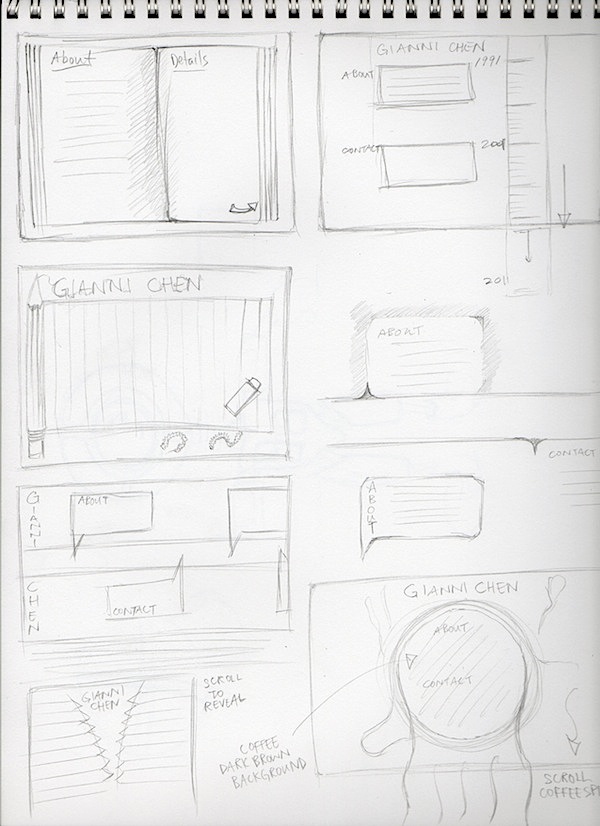 About
Details
GIANNI CHEN
1991
ABOUT
CONTACT
2001
2011
GIANNI CHEN
ABOUT
CONTACT
GIANNI
ABOUT
CHEN
CONTACT
ABOUT
GIANNI
CHEN
SCROLL
TO
REVEAL
GIANNI CHEN
ABOUT
CONTACT
COFFEE
DARK BROWN
BACKGROUND
SCROLL